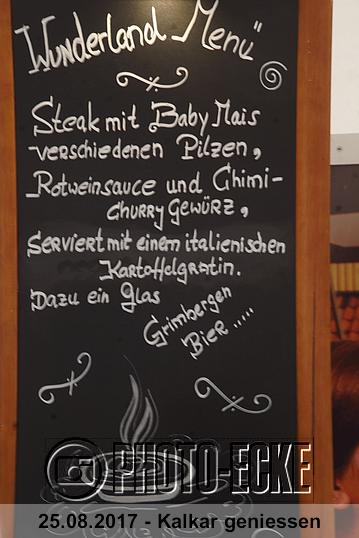 Wunderland Menü"
Steak mit Baby Mais
verschiedenen Pilzen,
Rotweinsauce und Chimi-
churry Gewürz,
Serviert mit einem italienischen
Kartoffelgratin.
Dazu ein Glas
Grimbergen
Bier.....
© PHOTO-ECKE
25.08.2017 - Kalkar geniessen